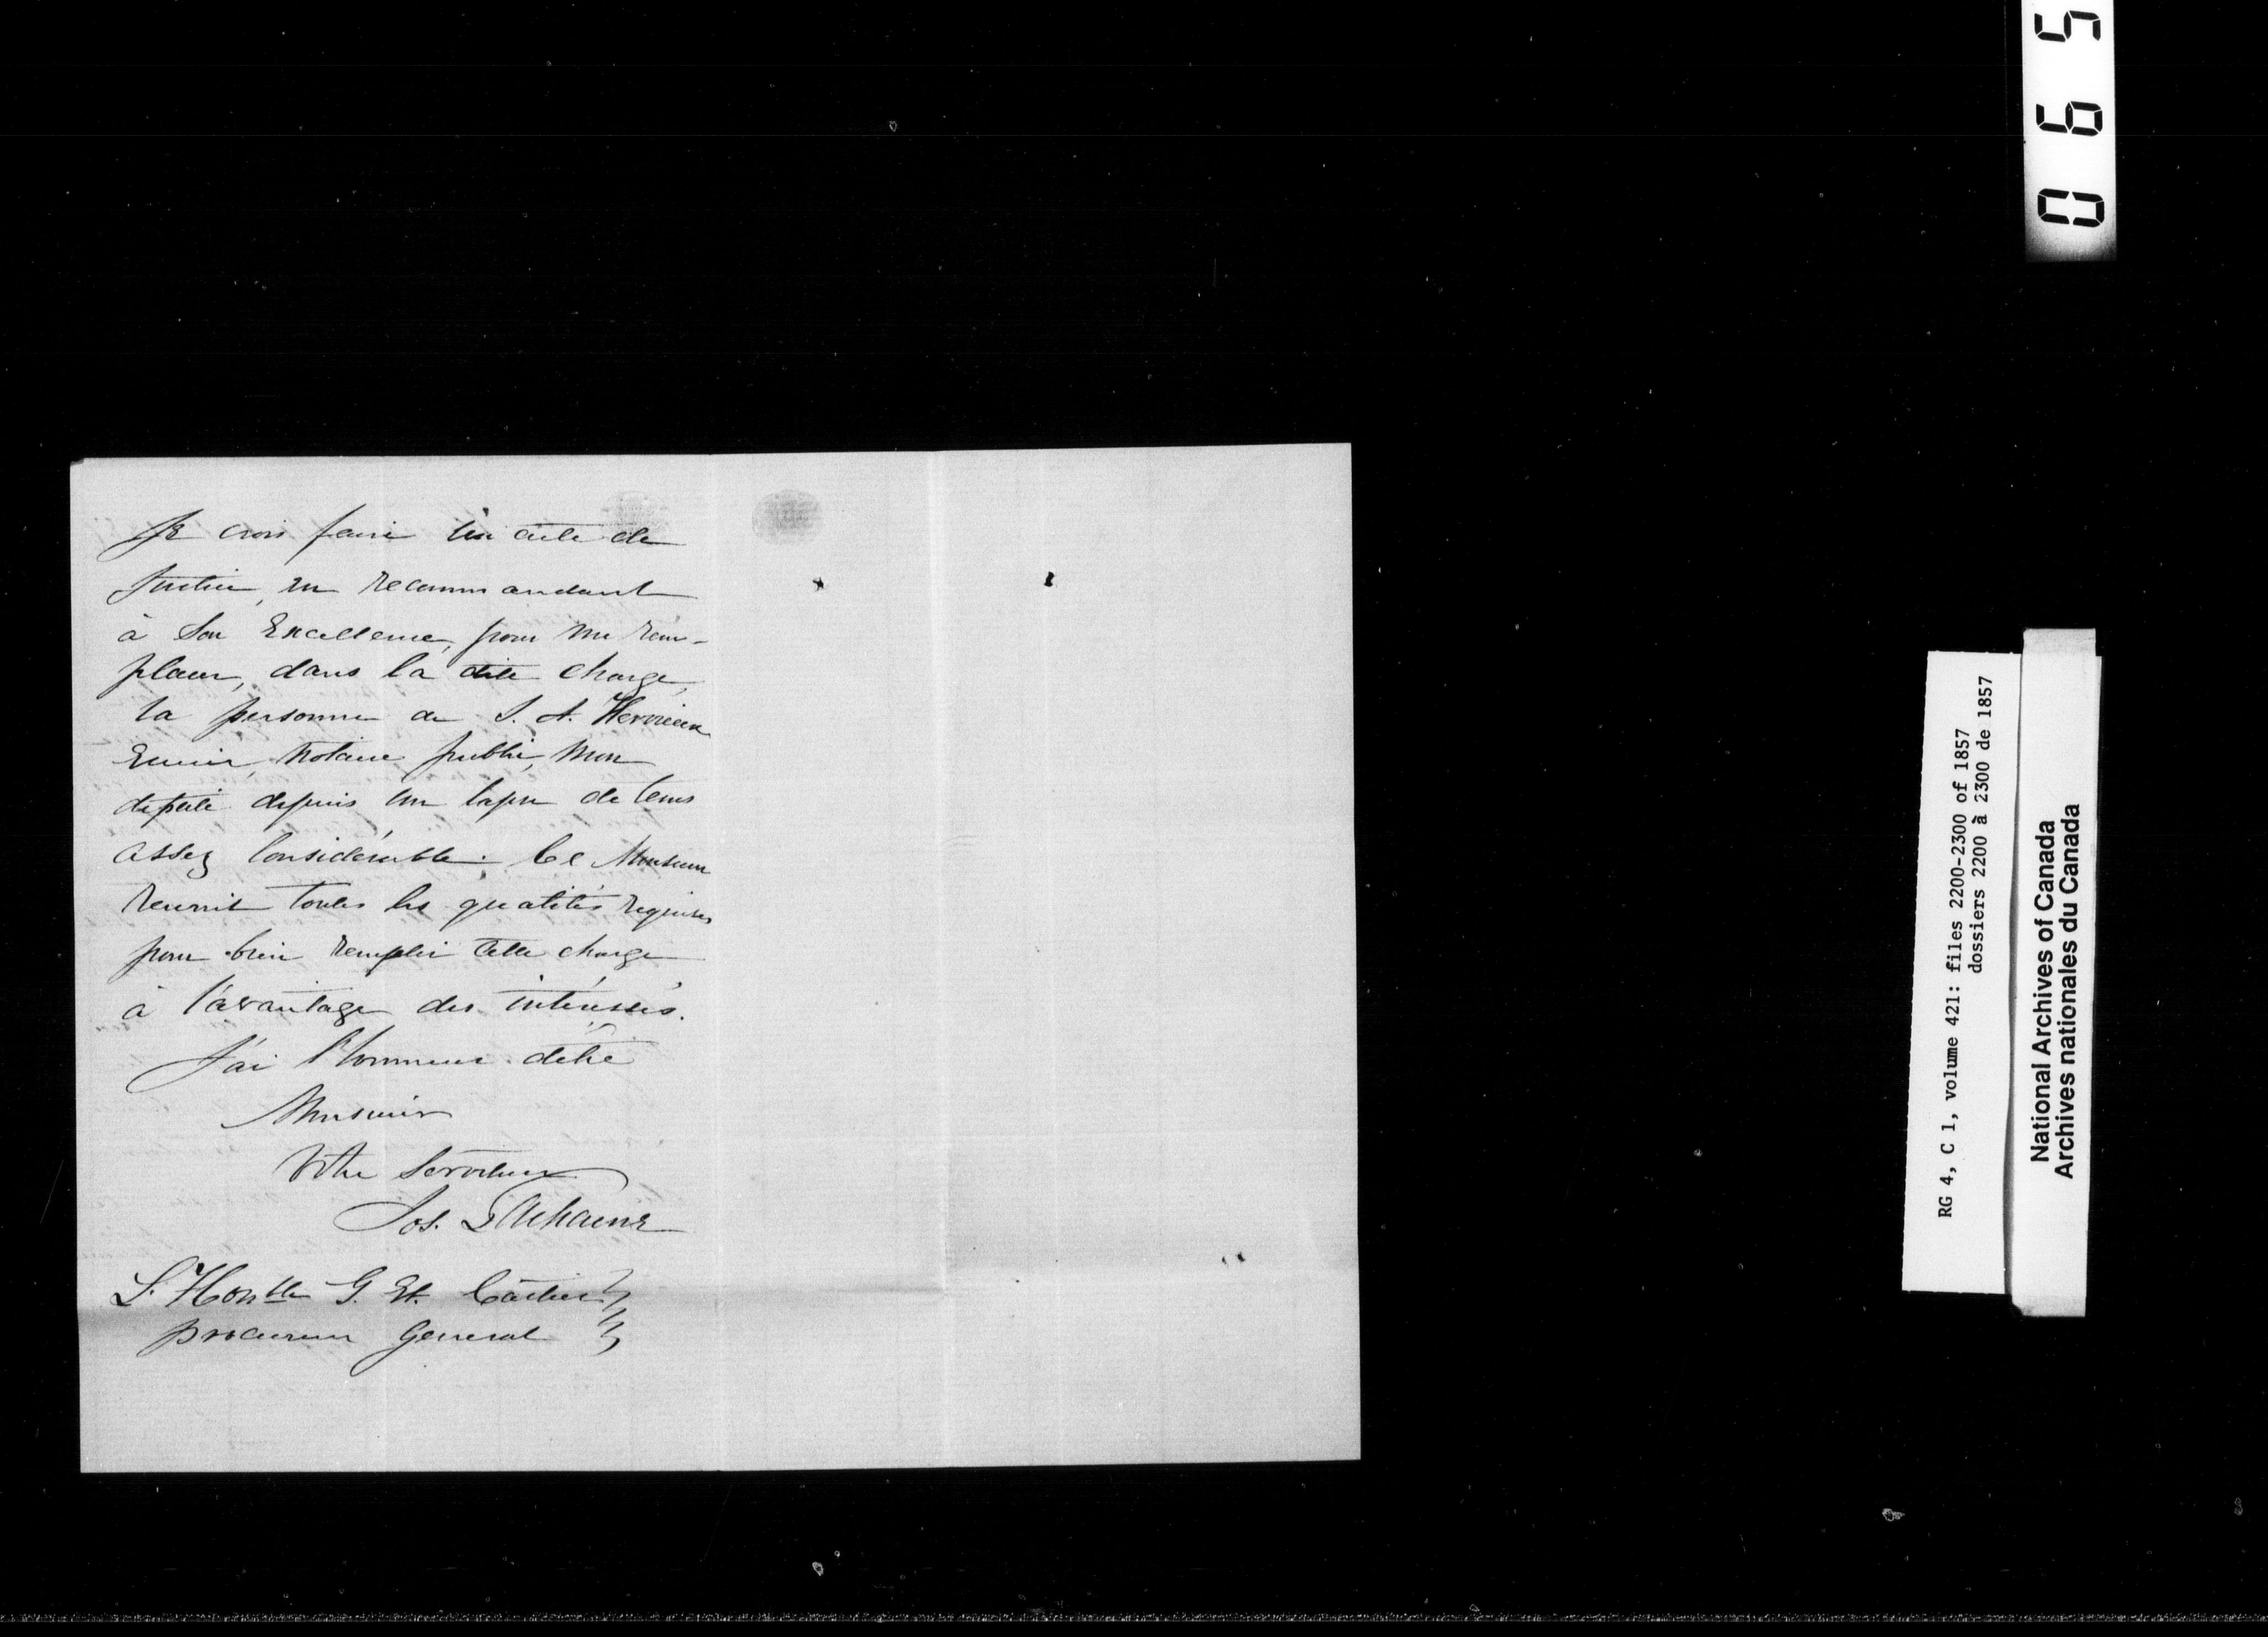 Je crois faire un acte de
Justice, en recommandant
à Son Excellence, pour me rem-
placer, dans la dite charge,
la personne de S. A. Hervieux
Ecuier, Notaire public, mon
député depuis un lapse de tems
assez considérable. Ce Monsieur
reunit toutes les qualités requises
pour bien remplir cette charge
à l'avantage des intéressés.
J'ai l'honneur d'être
Monsieur
Votre Serviteur
Jos.
L'Honble G. Et. Cartier
procureur General
0 6 5
RG 4, C 1, volume 421: files 2200-2300 of 1857
dossiers 2200 à 2300 de 1857
National Archives of Canada
Archives nationales du Canada